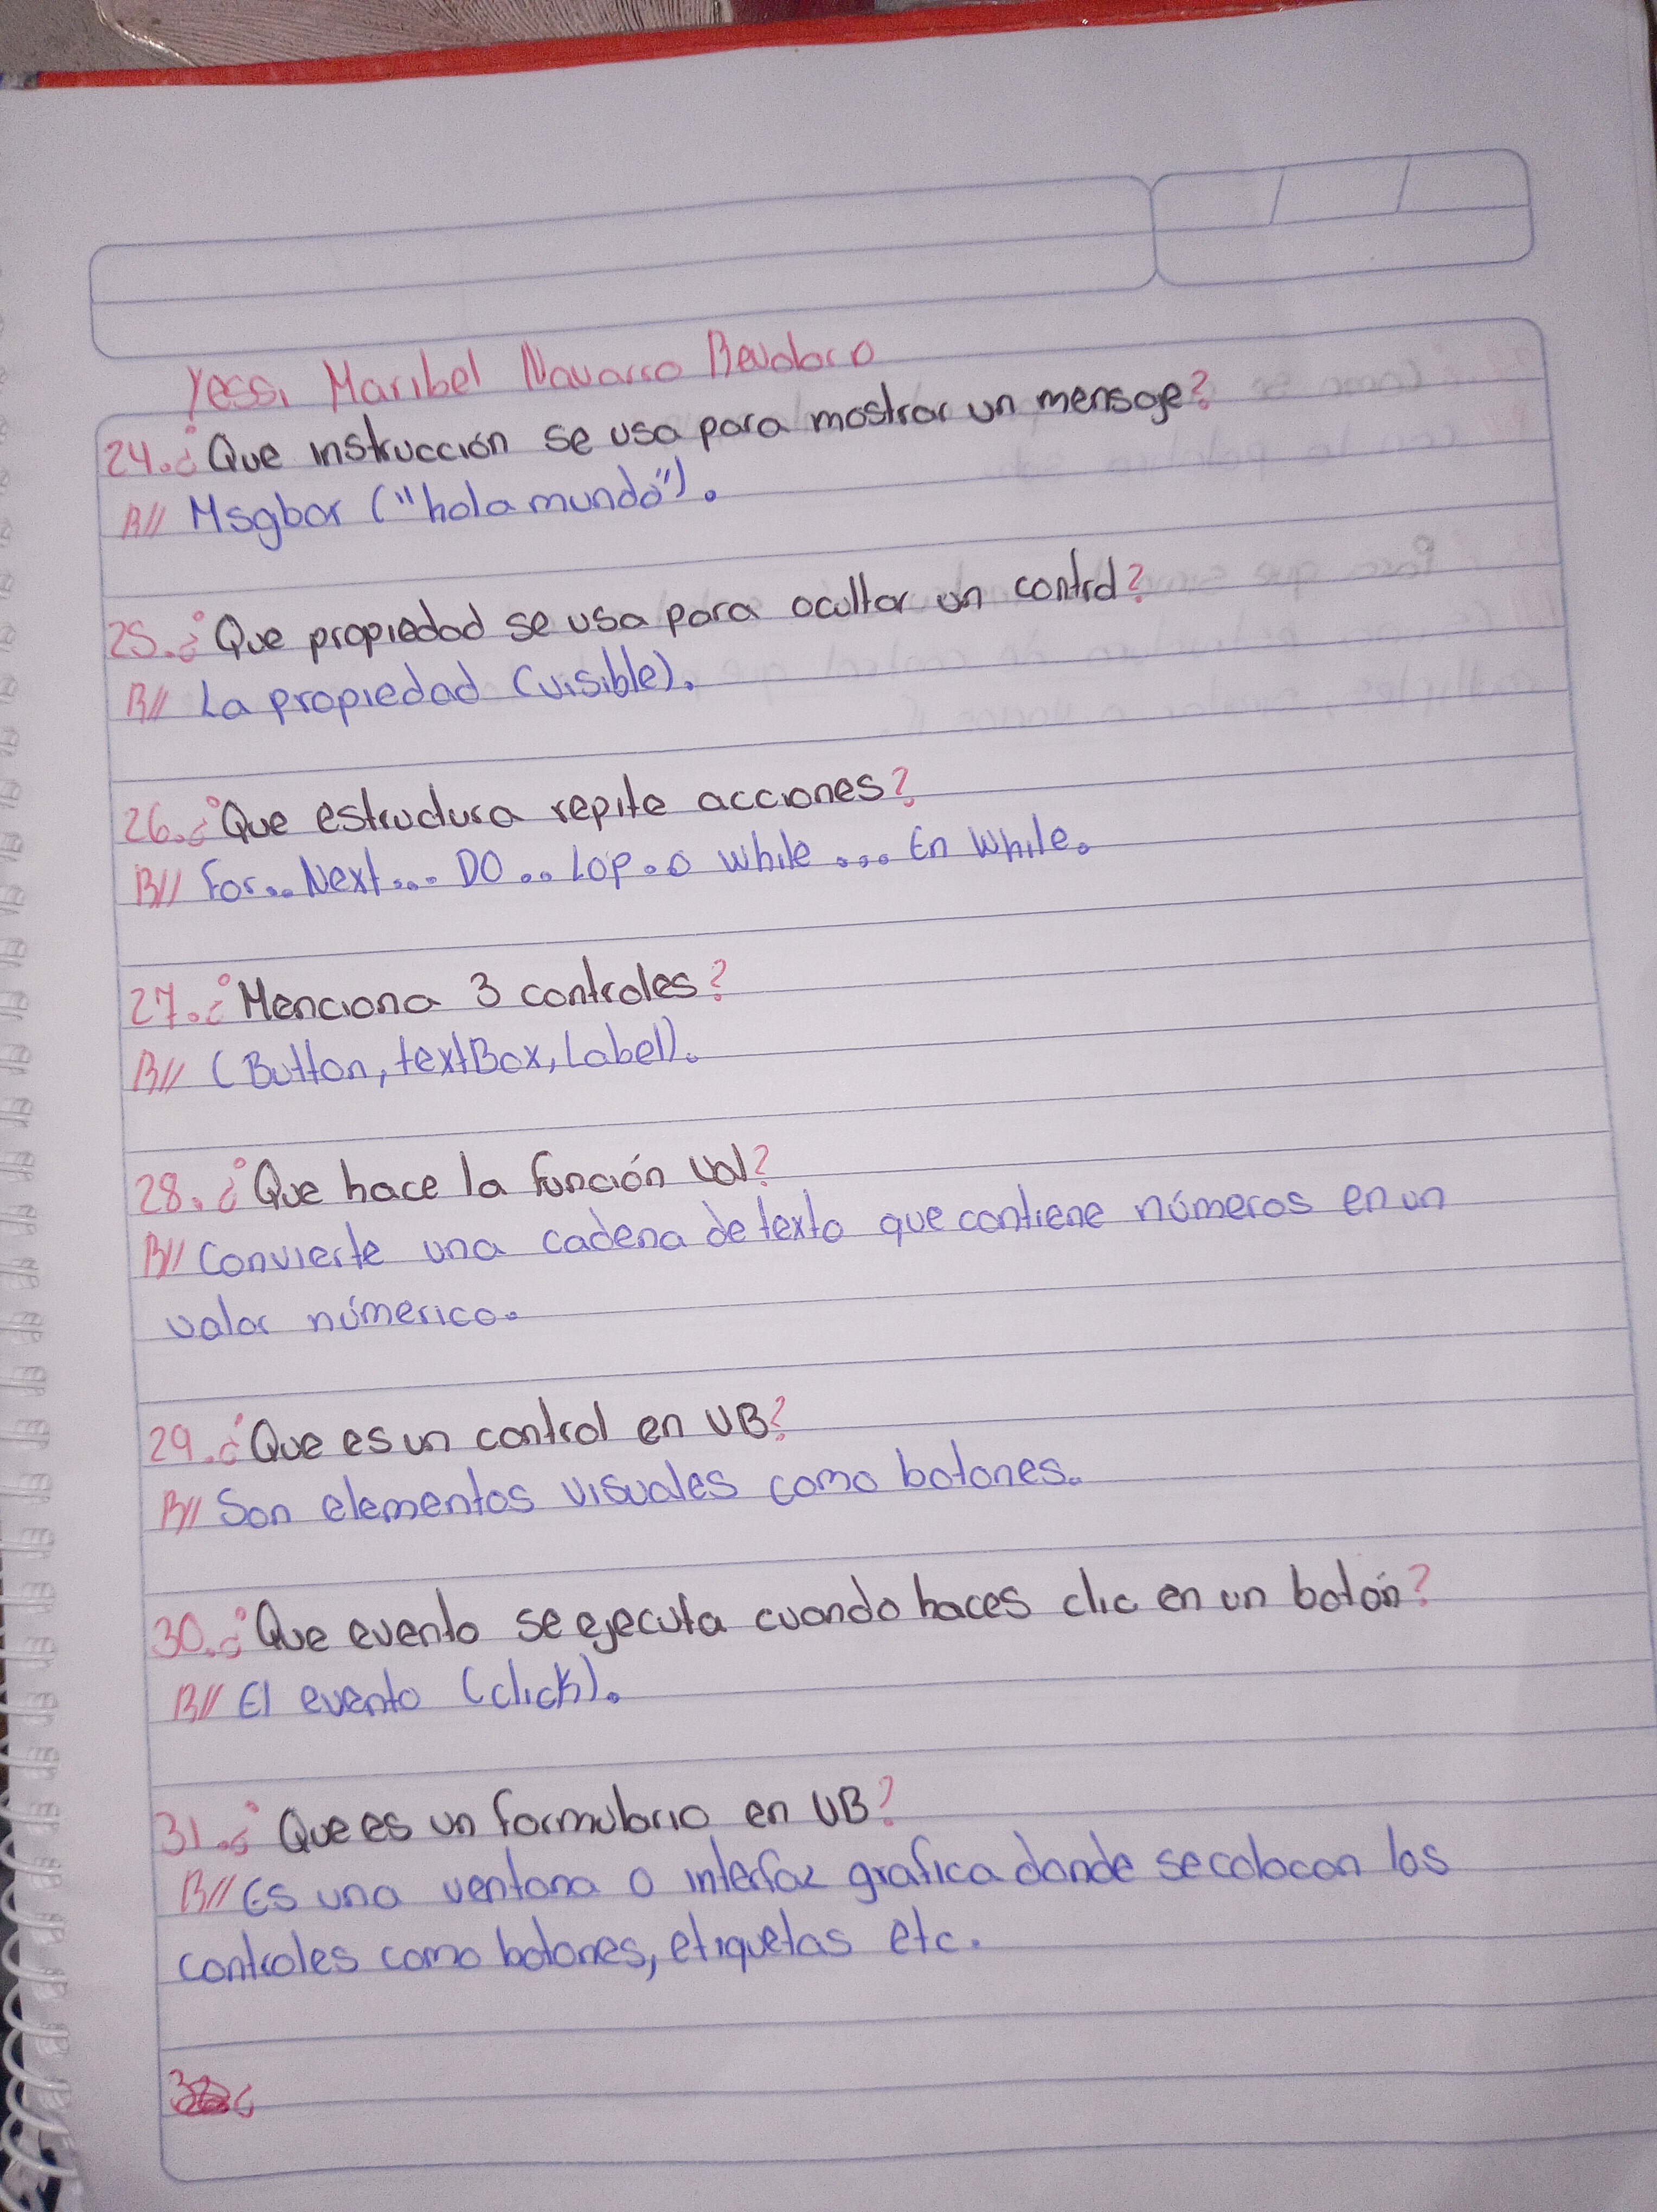 Yessi Maribel Navarro Revoloro
24. ¿Que instrucción se usa para mostrar un mensaje?
R// Msgbox ("hola mundo").
25. ¿Que propiedad se usa para ocultar un control?
R// La propiedad (visible).
26. ¿Que estructura repite acciones?
R// For.. Next... DO .. Lop. o while ... En While.
27. ¿Menciona 3 controles?
R// (Button, textBox, Label).
28. ¿Que hace la función val?
R// Convierte una cadena de texto que contiene números en un
valor númerico.
29. ¿Que es un control en VB?
R// Son elementos visuales como botones.
30. ¿Que evento se ejecuta cuando haces clic en un botón?
R// El evento (click).
31. ¿Que es un formulario en VB?
R// Es una ventana o interfaz grafica donde se colocan los
controles como botones, etiquetas etc.